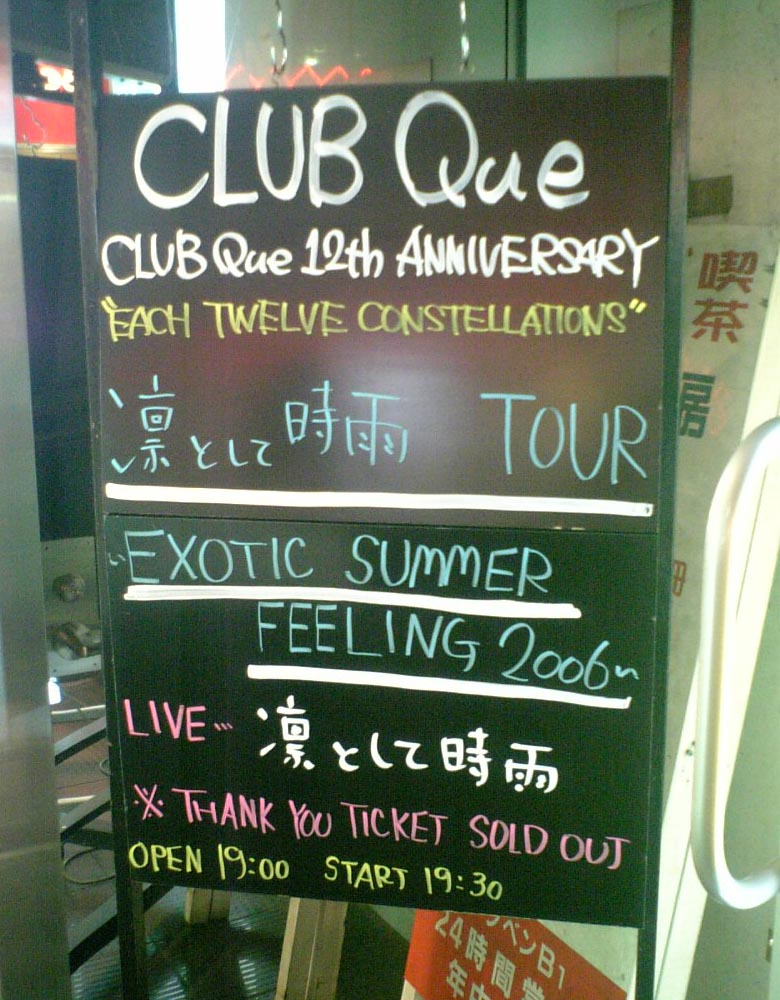 CLUB Que
CLUB Que 12th ANNIVERSARY
"EACH TWELVE CONSTELLATIONS"
凛として時雨 TOUR
~EXOTIC SUMMER
FEELING 2006~
LIVE...
凛として時雨
※THANK YOU TICKET SOLD OUT
OPEN 19:00 START 19:30
喫茶
房
ペンB1
24時間営
年中